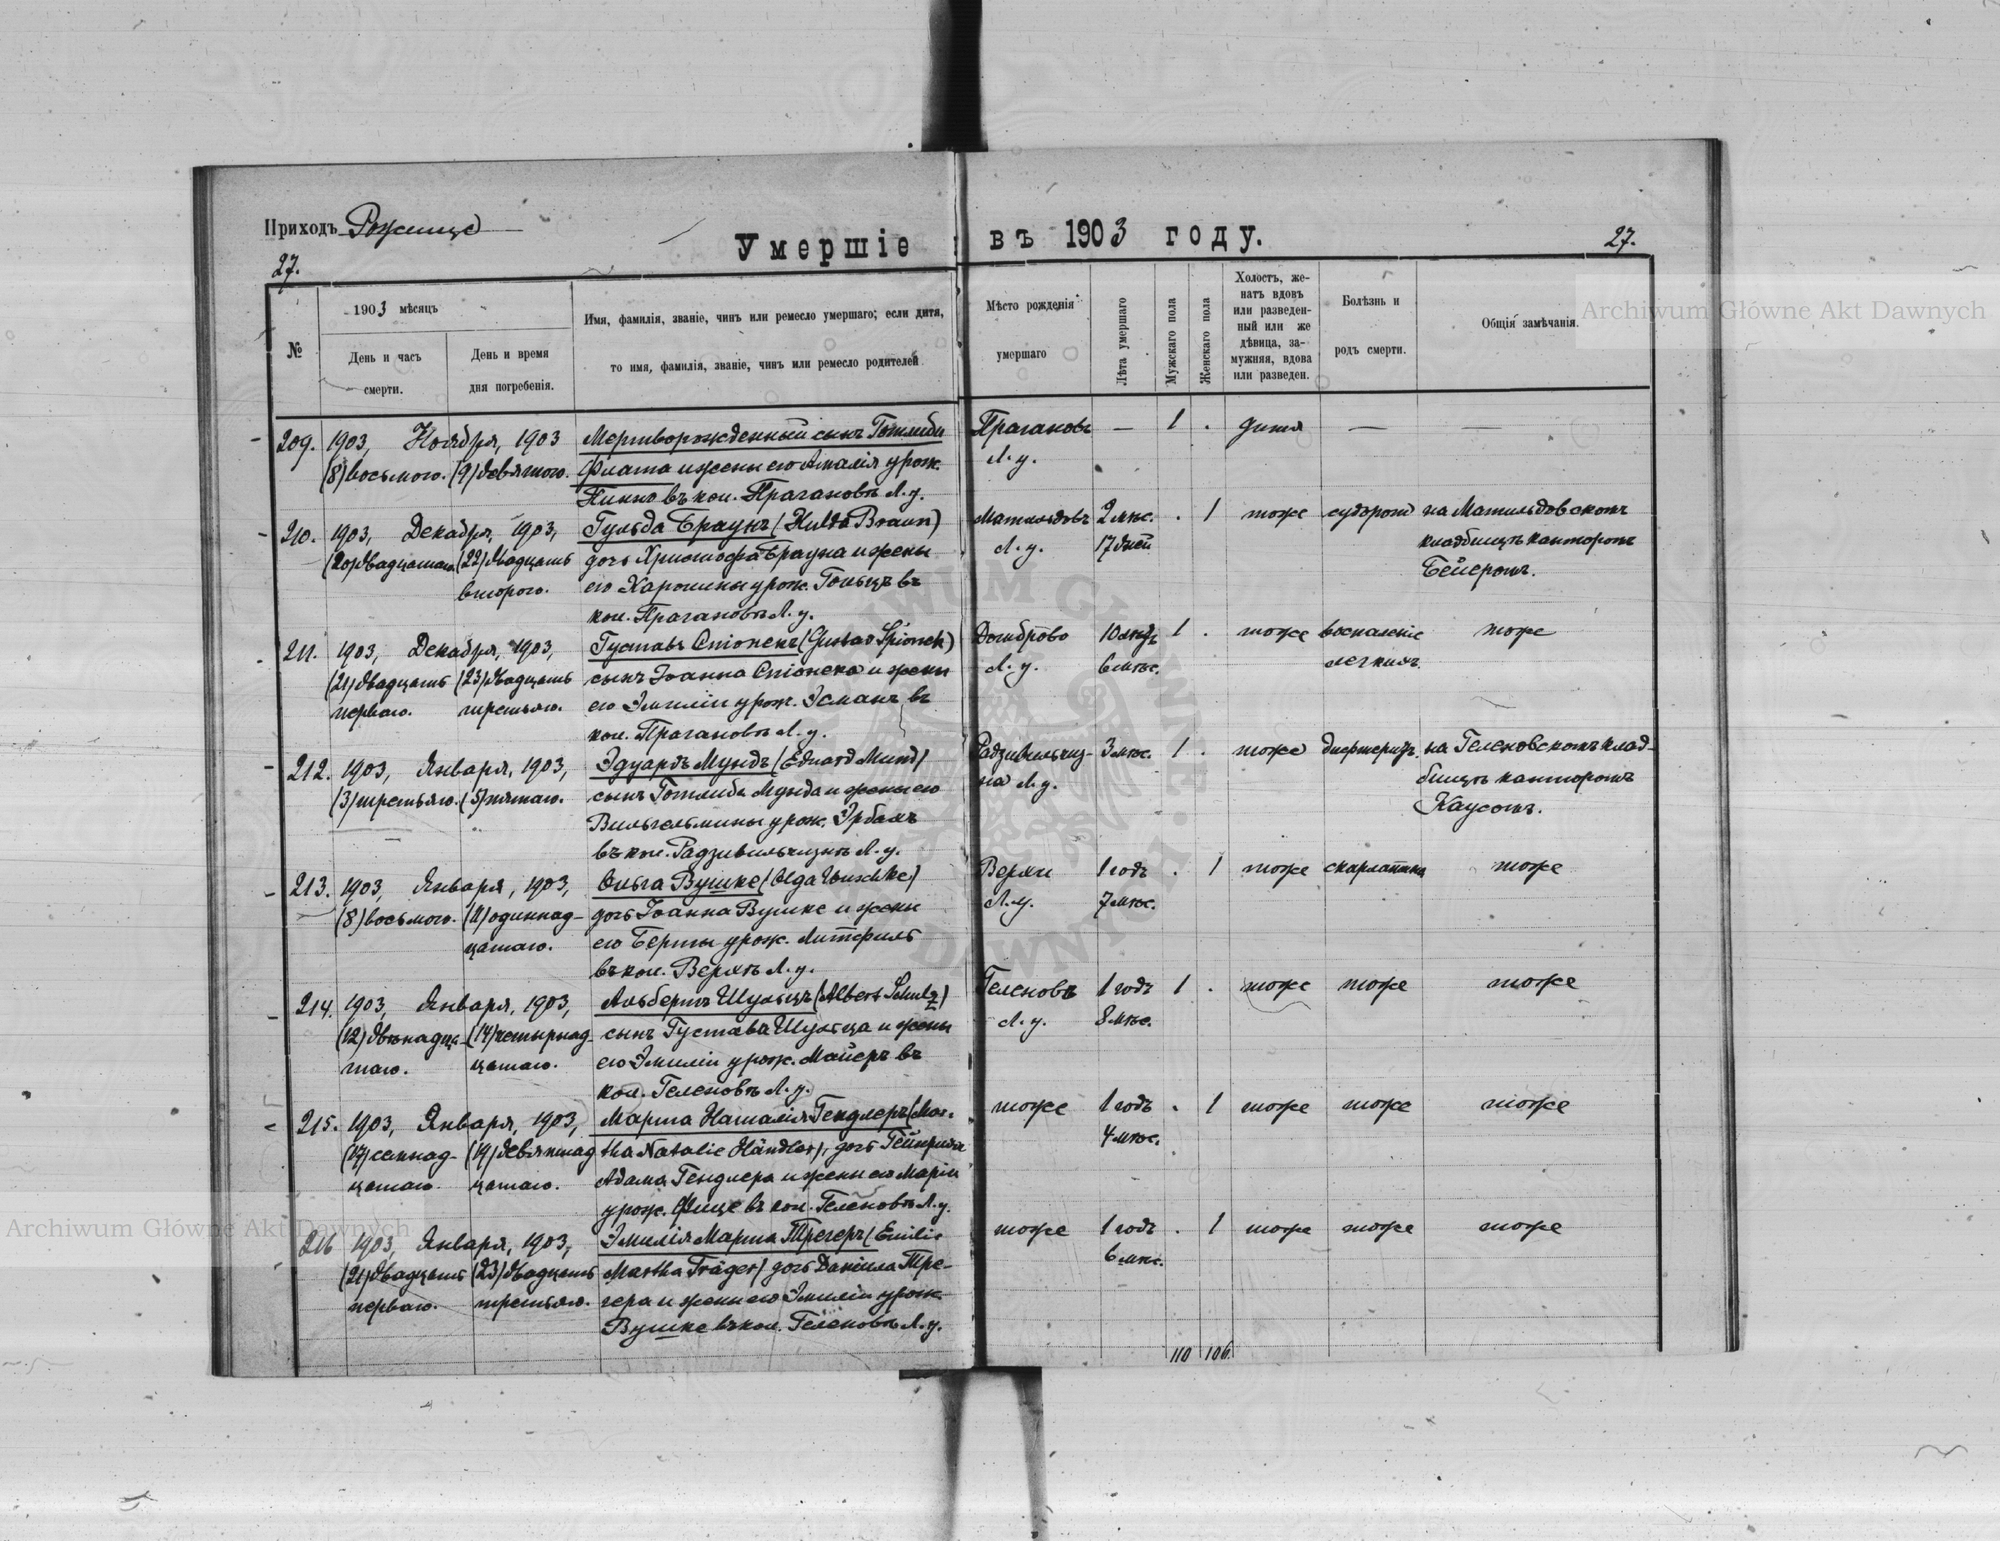 Приходъ Рожище
Умершіе въ 1903 году.
27.
27.
№
1903 мѣсяцъ
День и часъ смерти.
День и время дня погребенія.
Имя, фамилія, званіе, чинъ или ремесло умершаго; если дитя,
то имя, фамилія, званіе, чинъ или ремесло родителей
Мѣсто рожденія умершаго
Лѣта умершаго
Мужскаго пола
Женскаго пола
Холостъ, же-
натъ вдовъ
или разведен-
ный или же
дѣвица, за-
мужняя, вдова
или разведен.
Болѣзнь и
родъ смерти.
Общія замѣчанія.
Archiwum Główne Akt Dawnych
209. 1903, Ноября, 1903 Мертворожденный сынъ Готлиба Прагановъ — 1 . дитя — —
(8) восьмого. (9) девятого. Флата и жены его Амалія урож. Л. у.
въ кол. Прагановъ Л. у.
210. 1903, Декабря, 1903, Гульда Браунъ (Hulda Braun) Матильдовъ 2 мѣс. . 1 тоже судорогі на Матильдовскомъ
(20) двадцатаго (22) двадцать дочь Христофа Брауна и жены Л. у. 17 дней кладбищѣ канторомъ
второго. его Каролины урож. Гольцъ въ Бейеромъ.
кол. Прагановъ Л. у.
211. 1903, Декабря, 1903, Густавъ Спіонекъ (Gustav Spionek) Домброво 10 лѣтъ 1 . тоже воспаленіе тоже
(21) двадцать (23) двадцать сынъ Іоанна Спіонека и жены Л. у. 6 мѣс. легкихъ
перваго. третьяго. его Эмиліи урож. Эсманъ въ
кол. Прагановъ Л. у.
212. 1903, Января, 1903, Эдуардъ Мундъ (Eduard Mund) Радзивильчиз- 3 мѣс. 1 . тоже дифтеритъ на Геленовскомъ клад-
(3) третьяго. (5) пятаго. сынъ Готлиба Мунда и жены его на Л. у. бищѣ канторомъ
Вильгельмины урож. Эрбахъ Каусомъ.
въ кол. Радзивильчизнѣ Л. у.
213. 1903, Января, 1903, Ольга Вушке (Olga Wuschke) Верхи 1 годъ . 1 тоже скарлатина тоже
(8) восьмого. (11) одиннад- дочь Іоанна Вушке и жены Л. у. 7 мѣс.
цатаго. его Берты урож.
въ кол. Верхъ Л. у.
214. 1903, Января, 1903, Альбертъ Шульцъ (Albert Schulz) Геленовъ 1 годъ 1 . тоже тоже тоже
(12) двѣнадца- (14) четырнад- сынъ Густава Шульца и жены Л. у. 8 мѣс.
таго. цатаго. его Эмиліи урож. Майеръ въ
кол. Геленовъ Л. у.
215. 1903, Января, 1903, Марта Наталія Гендлеръ (Mar- тоже 1 годъ . 1 тоже тоже тоже
(17) семнад- (19) девятнад tha Natalie Händler), дочь Гейнриха 4 мѣс.
цатаго. цатаго. Адама Гендлера и жены его Маріи
урож. Фице въ кол. Геленовъ Л. у.
216 1903, Января, 1903, Эмилія Марта Трегеръ (Emilie тоже 1 годъ . 1 тоже тоже тоже
(21) двадцать (23) двадцать Martha Träger) дочь Даніила Тре- 6 мѣс.
перваго. третьяго. гера и жены его Эмиліи урож.
Вушке въ кол. Геленовъ Л. у.
110 106.
Archiwum Główne Akt Dawnych